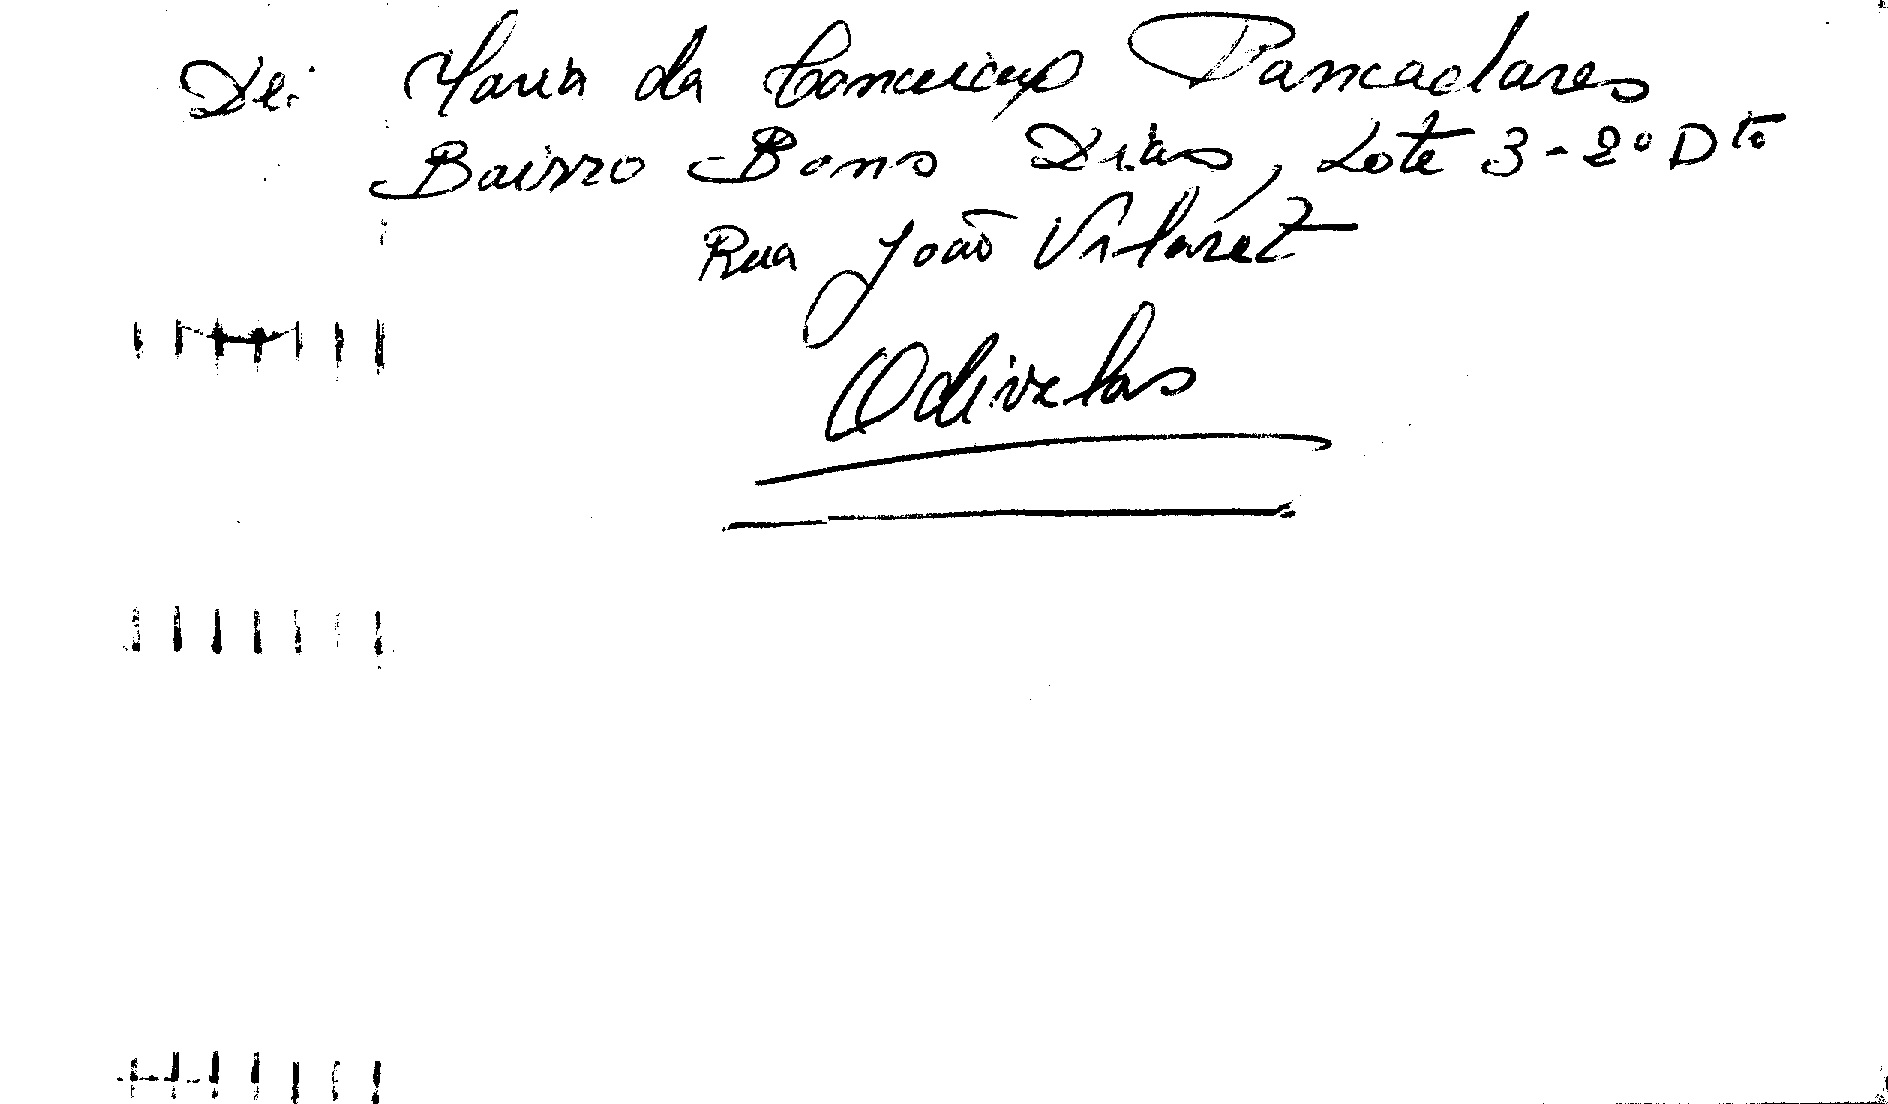 De: Maria da Conceição Pancadares
Bairro Bons Dias, Lote 3-2º Dto
Rua João Vilaret
Odivelas